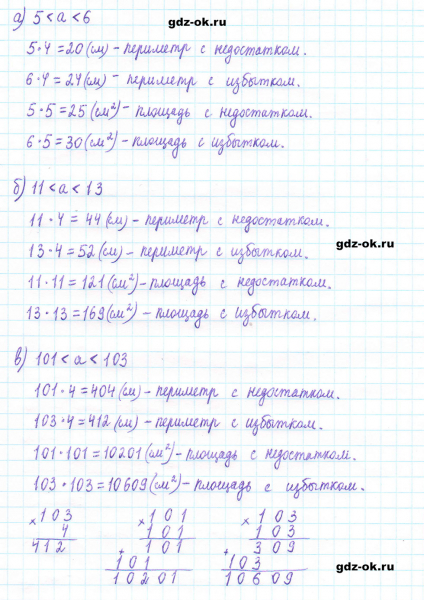 а) 5 < a < 6
gdz-ok.ru
5·4=20(см) - периметр с недостатком.
6·4=24(см) - периметр с избытком.
5·5=25(см²) - площадь с недостатком.
gdz-ok.ru
6·5=30(см²) - площадь с избытком.
б) 11 < a < 13
11·4=44(см) - периметр с недостатком.
gdz-ok.ru
13·4=52(см) - периметр с избытком.
11·11=121(см²) - площадь с недостатком.
13·13=169(см²) - площадь с избытком.
gdz-ok.ru
в) 101 < a < 103
101·4=404(см) - периметр с недостатком.
gdz-ok.ru
103·4=412(см) - периметр с избытком.
101·101=10201(см²) - площадь с недостатком.
103·103=10609(см²) - площадь с избытком.
gdz-ok.ru
×103 ×101 ×103
4 101 103
412 +101 +309
101 103
10201 10609
gdz-ok.ru